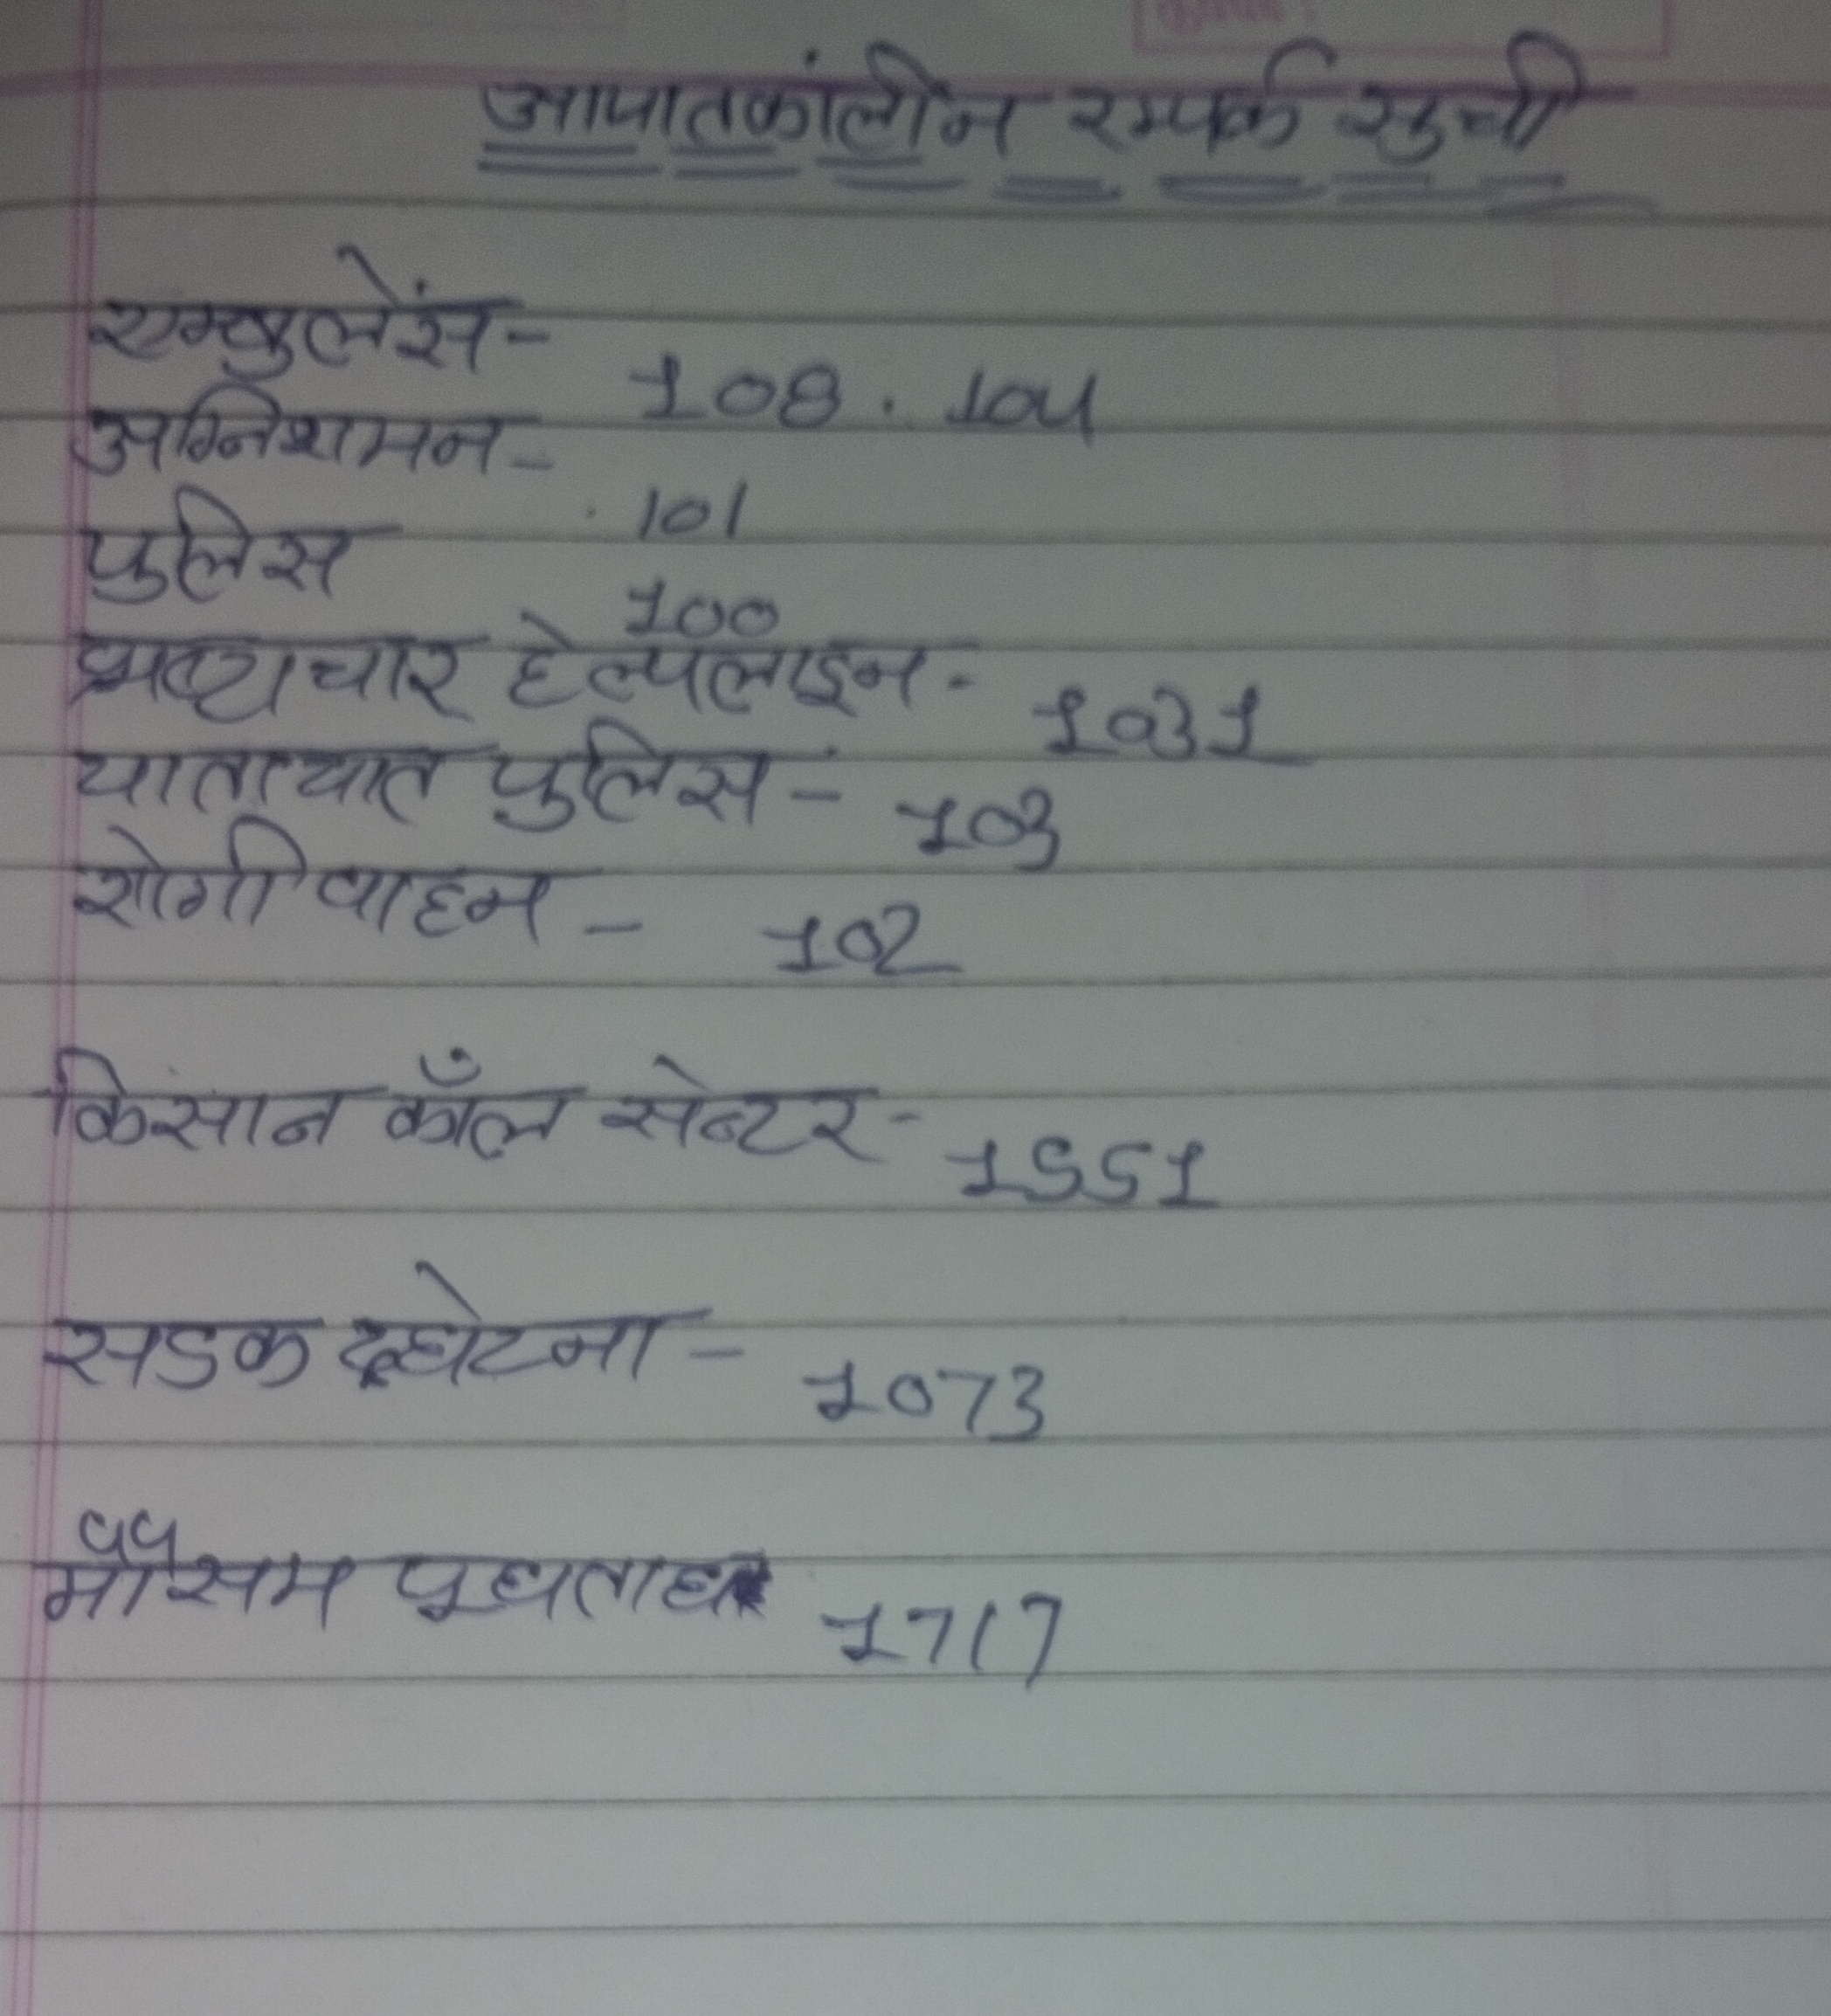 आपातकांलीन सम्पर्क सुची
एम्बुलेंस - 108. 104
अग्निशमन - 101
पुलिस 100
भ्रष्टाचार हेल्पलाइन - 1031
यातायात पुलिस - 103
रोगी वाहन - 102
किसान कॉल सेन्टर - 1551
सडक दुर्घटना - 1073
मौसम पूछताछ 1717